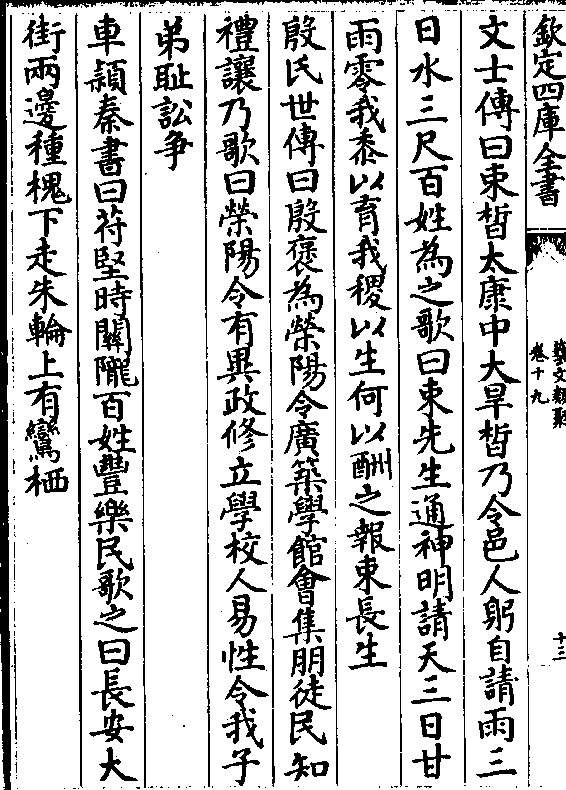 欽定四庫全書
藝文類聚
卷十九
十三
文士傳曰束晳太康中大旱晳乃令邑人躬自請雨三
日水三尺百姓為之歌曰束先生通神明請天三日甘
雨零我黍以育我稷以生何以酬之報束長生
殷氏世傳曰殷褒為滎陽令廣築學館會集朋徒民知
禮讓乃歌曰滎陽令有異政修立學校人易性令我子
弟恥訟争
車頻秦書曰苻堅時關隴百姓豐樂民歌之曰長安大
街兩邊種槐下走朱輪上有鸞栖